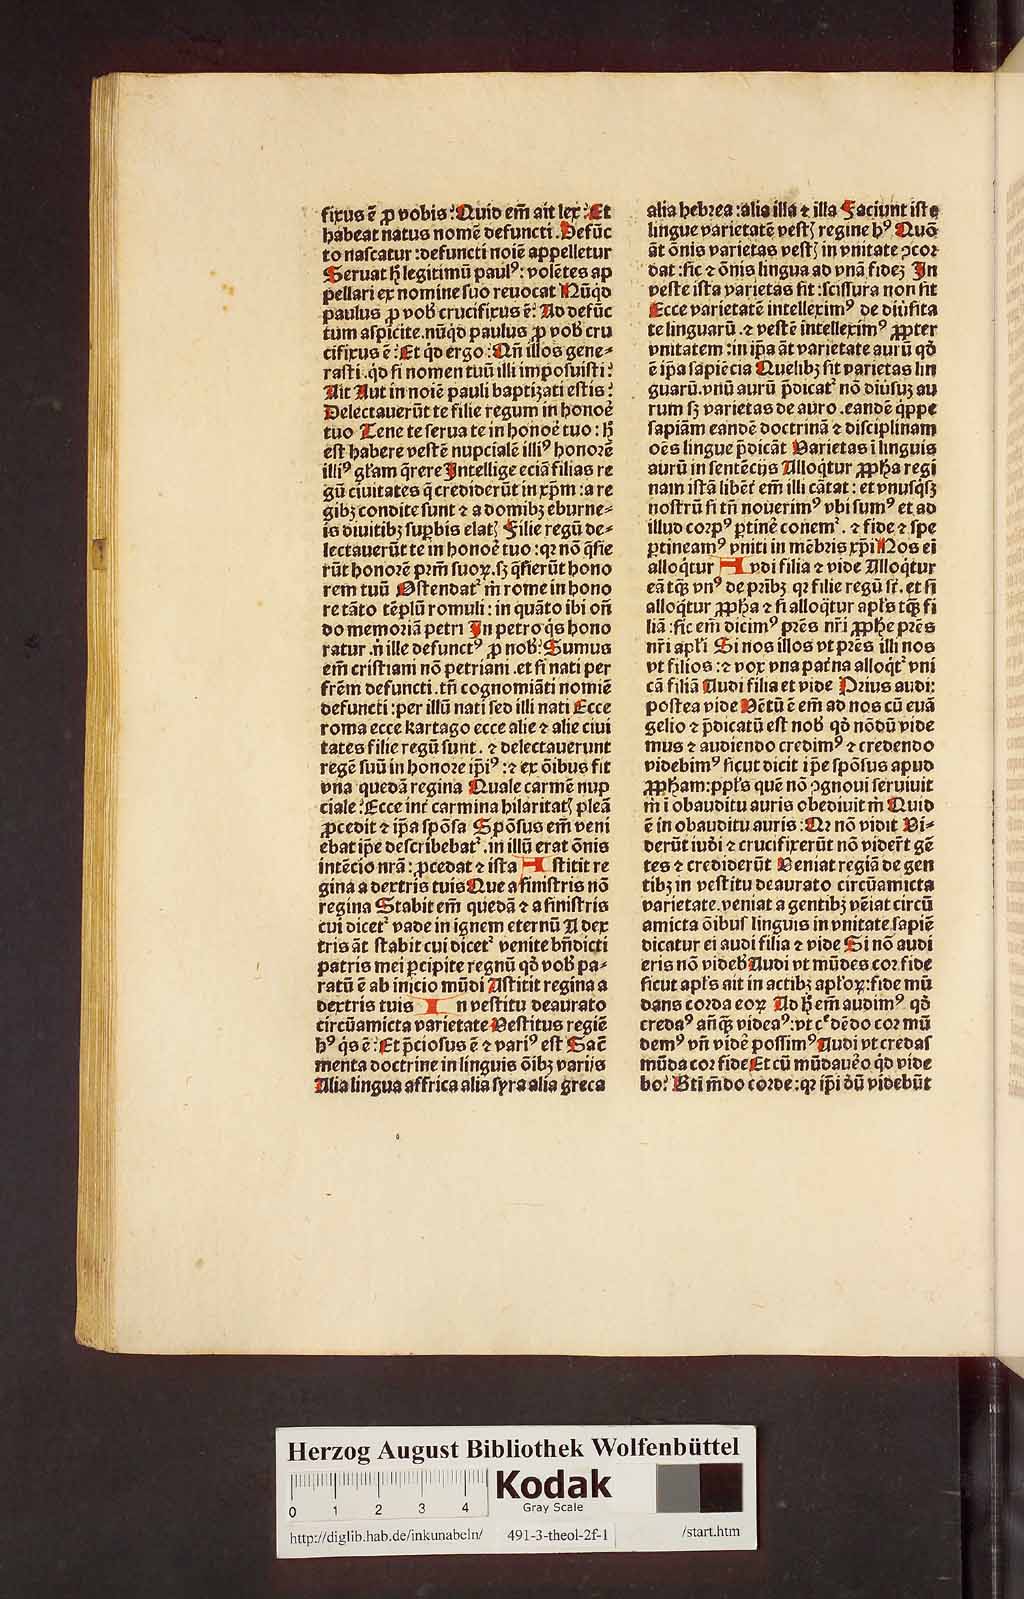 fixus ē ꝓ vobis: Quid em̄ ait lex: Et
habeat natus nomē defuncti. Defūc
to nascatur: defuncti noīe appelletur
Seruat hͦ legitimū paulꝰ: volētes ap
pellari ex nomine suo reuocat Nūqd
paulus ꝓ vob crucifixus ē: Ad defūc
tum aspicite. nūqd paulus ꝓ vob cru
cifixus ē: Et qd ergo: Qn̄ illos gene⸗
rasti. qd si nomen tuū illi imposuisti:
Ait Aut in noīe pauli baptizati estis:
Delectauerūt te filie regum in honoē
tuo Tene te serua te in honoē tuo: hͦ
est habere vestē nupcialē illiꝰ honorē
illiꝰ gl̄am q̄rere Intellige eciā filias re
gū ciuitates q̄ crediderūt in xp̄m: a re
gibꝫ condite sunt ⁊ a domibꝫ eburne⸗
is diuitibꝫ suꝑbis elatꝭ Filie regū de⸗
lectauerūt te in honoē tuo: qꝛ nō q̄sie
rūt honorē prm̄ suoꝝ. sꝫ q̄sierūt hono
rem tuū Ostendatᷣ m̄ rome in hono
re tāto tēplū romuli: in quāto ibi on̄
do memoriā petri In petro qs hono
ratur. n̄ ille defunctꝰ ꝓ nob: Sumus
em̄ cristiani nō petriani. et si nati per
frēm defuncti. tn̄ cognomiāti nomiē
defuncti: per illū nati sed illi nati Ecce
roma ecce kartago ecce alie ⁊ alie ciui
tates filie regū sunt. ⁊ delectauerunt
regē suū in honore ip̄iꝰ: ⁊ ex ōibus fit
vna quedā regina Quale carmē nup
ciale: Ecce int̄ carmina hilaritatꝭ pleā
ꝓcedit ⁊ ip̄a spōsa Spōsus em̄ veni
ebat ip̄e describebatᷣ. in illū erat ōnis
intēcio nr̄a: ꝓcedat ⁊ ista Astitit re
gina a dextris tuis Que a sinistris nō
regina Stabit em̄ quedā ⁊ a sinistris
cui dicetᷣ vade in ignem eternū A dex
tris āt stabit cui dicetᷣ venite bn̄dicti
patris mei ꝑcipite regnū qd vob pa⸗
ratū ē ab inicio mūdi Astitit regina a
dextris tuis In vestitu deaurato
circūamicta varietate Vestitus regiē
hꝰ qs ē: Et p̄ciosus ē ⁊ variꝰ est Sac̄
menta doctrine in linguis ōibꝫ varijs
Alia lingua affrica alia syra alia greca
alia hebrea: alia illa ⁊ illa Faciunt iste
lingue varietatē vestꝭ regine hꝰ Quō
āt ōnis varietas vestꝭ in vnitate ꝯcor
dat: sic ⁊ ōnis lingua ad vnā fideꝫ In
veste ista varietas sit: scissura non sit
Ecce varietatē intelleximꝰ de diūsita
te linguarū. ⁊ vestē intelleximꝰ ꝓpter
vnitatem: in ip̄a āt varietate aurū qd
ē ip̄a sapiēcia Quelibꝫ sit varietas lin
guarū. vnū aurū p̄dicatᷣ nō diūsuꝫ au
rum sꝫ varietas de auro. eandē q̄ppe
sapiām eandē doctrinā ⁊ disciplinam
oēs lingue p̄dicāt Varietas ī linguis
aurū in sentēcijs Alloq̄tur ꝓpha regi
nam istā libēt̄ em̄ illi cātat: et vnusq̄sꝫ
nostrū si tn̄ nouerimꝰ vbi sumꝰ et ad
illud corpꝰ ꝑtinē conemᷣ. ⁊ fide ⁊ spe
ꝑtineamꝰ vniti in mēbris xp̄i Nos ei
alloq̄tur Avdi filia ⁊ vide Alloq̄tur
eā tqꝫ vnꝰ de prībꝫ qꝛ filie regū st̄. et si
alloq̄tur ꝓpha ⁊ si alloq̄tur apl̄s tqꝫ fi
liā: sic em̄ dicimꝰ prēs nr̄i ꝓphe prēs
nr̄i apl̄i Si nos illos vt prēs illi nos
vt filios: ⁊ vox vna pat̄na alloqtᷣ vni
cā filiā Audi filia et vide Prius audi:
postea vide Vētū ē em̄ ad nos cū euā
gelio ⁊ p̄dicatū est nob qd nōdū vide
mus ⁊ audiendo credimꝰ ⁊ credendo
videbimꝰ sicut dicit ip̄e spōsus apud
ꝓpham: ppl̄s quē nō ꝯgnoui seruiuit
m̄ ī obauditu auris obediuit m̄ Quid
ē in obauditu auris: Qꝛ nō vidit Vi⸗
derūt iudi ⁊ crucifixerūt nō vider̄t gē
tes ⁊ crediderūt Veniat regiā de gen
tibꝫ in vestitu deaurato circūamicta
varietate. veniat a gentibꝫ vēiat circū
amicta ōibus linguis in vnitate sapiē
dicatur ei audi filia ⁊ vide Si nō audi
eris nō videb Audi vt mūdes cor fide
sicut apl̄s ait in actibꝫ apl̄oꝝ: fide mū
dans corda eoꝝ Ad hͦ em̄ audimꝰ qd
credaꝰ an̄qꝫ videaꝰ: vt c̄dēdo cor mū
demꝰ vn̄ vidē possimꝰ Audi vt credas
mūda cor fide Et cū mūdauēo qd vide
bo: Bt̄i mūdo corde: qꝛ ip̄i dū videbūt
Herzog August Bibliothek Wolfenbüttel
0 1 2 3 4
Kodak
Gray Scale
http://diglib.hab.de/inkunabeln/ 491-3-theol-2f-1 /start.htm